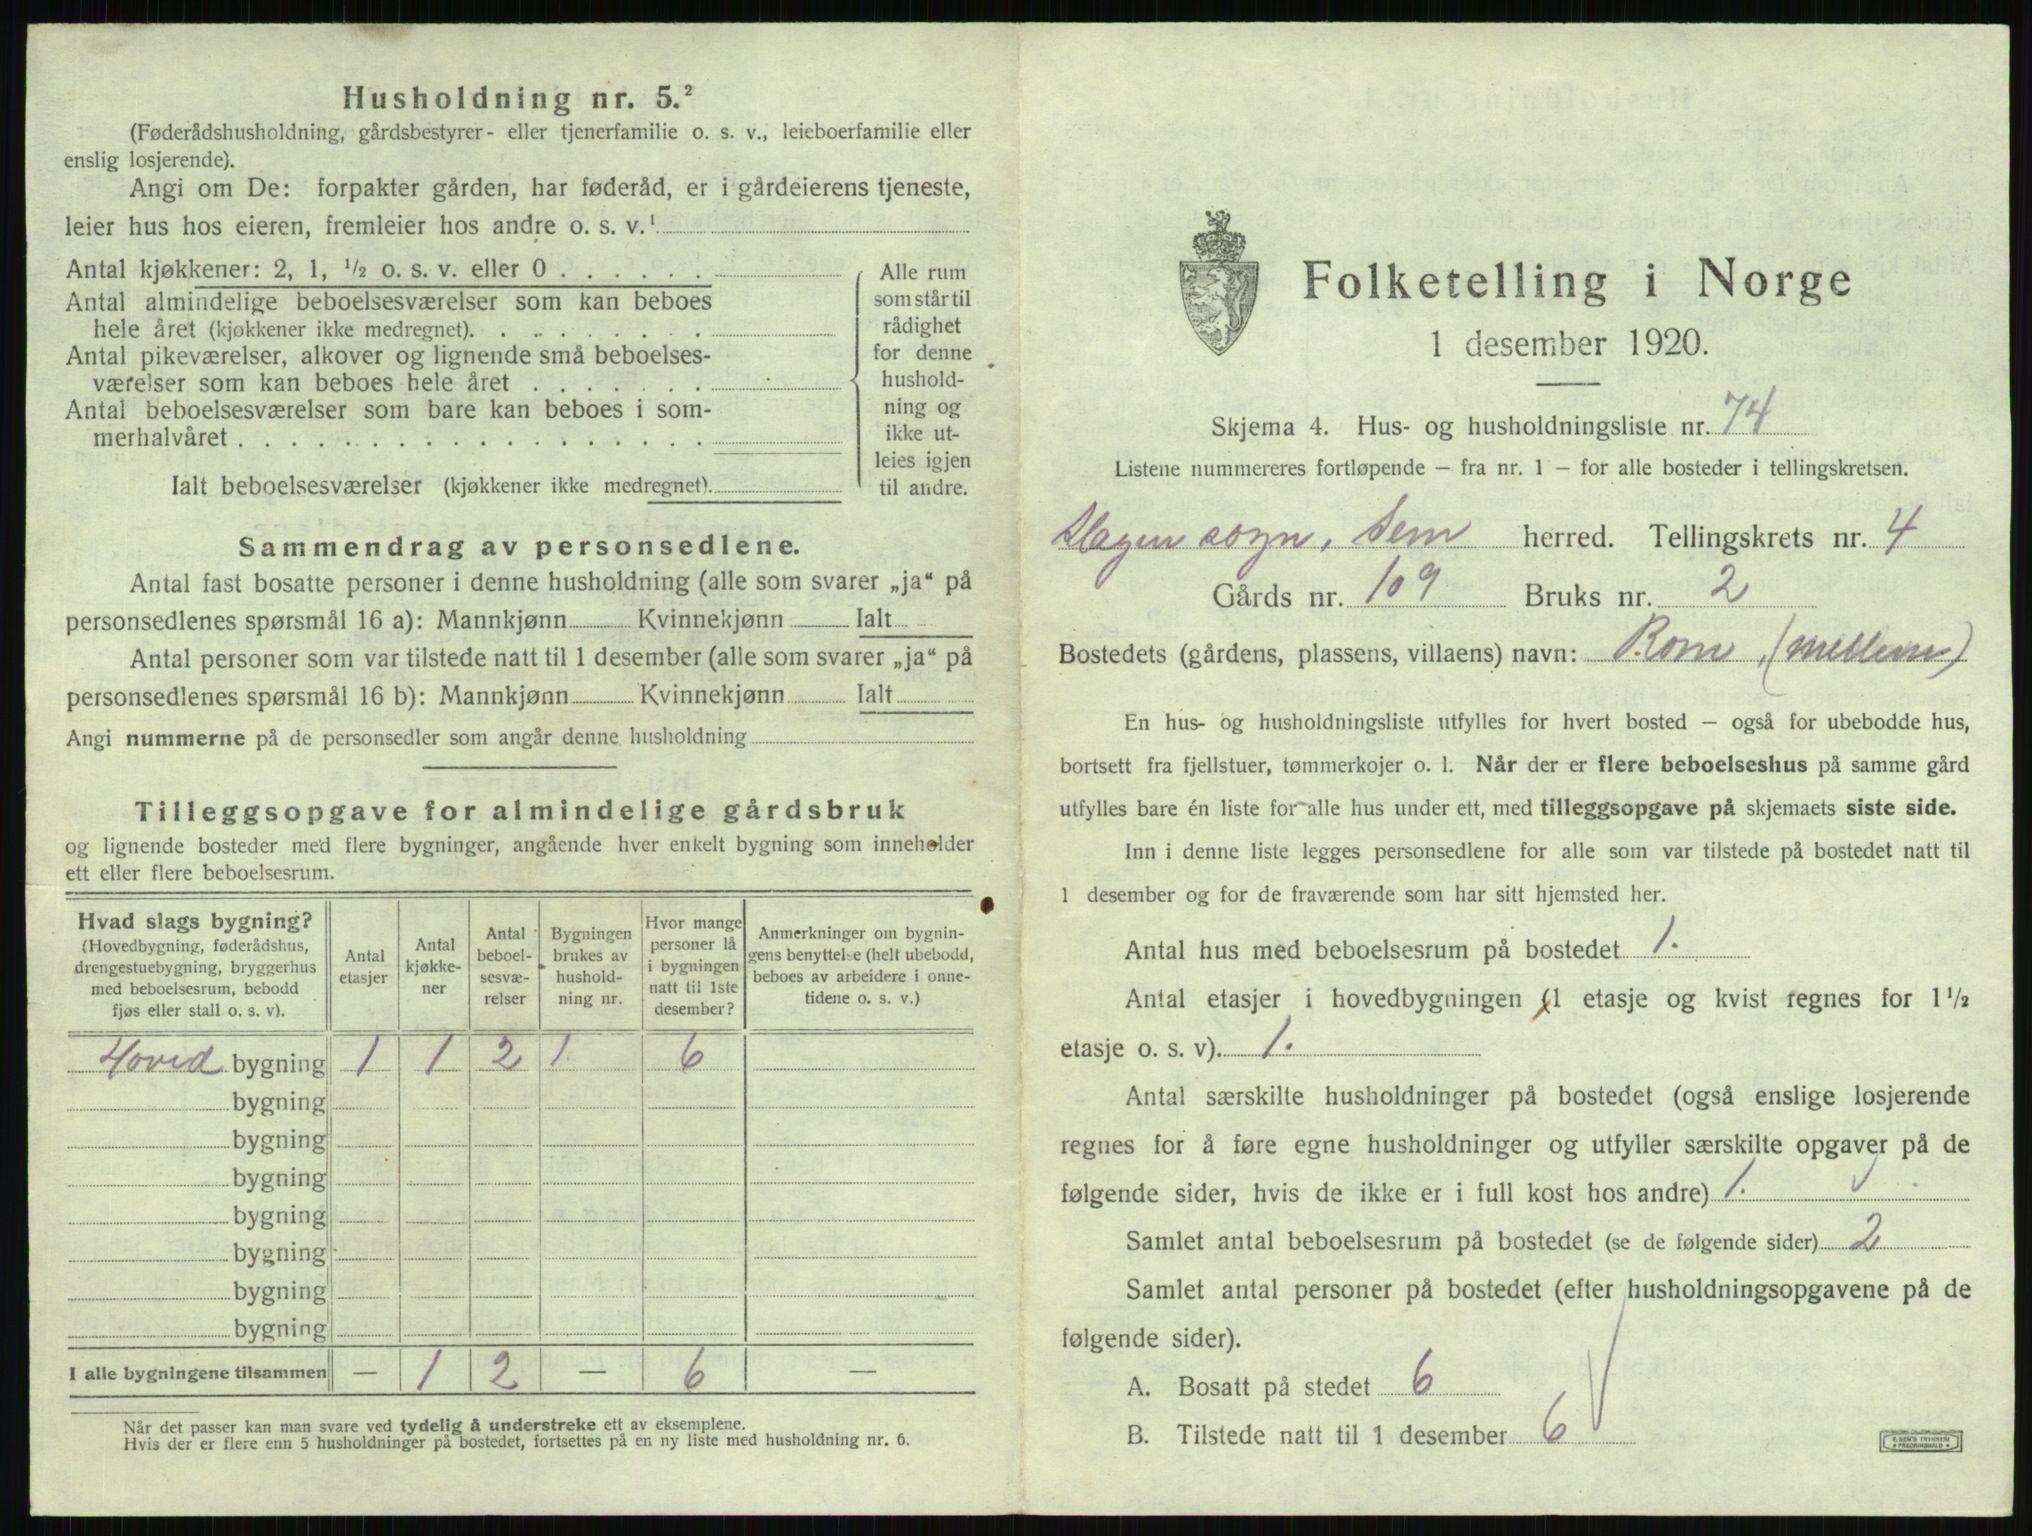 Husholdning nr. 5.²
(Føderådshusholdning, gårdsbestyrer- eller tjenerfamilie o. s. v., leieboerfamilie eller
enslig losjerende).
Angi om De: forpakter gården, har føderåd, er i gårdeierens tjeneste,
leier hus hos eieren, fremleier hos andre o. s. v.¹
Antal kjøkkener: 2, 1, ½ o. s. v. eller 0 . . . . . .
Antal almindelige beboelsesværelser som kan beboes
hele året (kjøkkener ikke medregnet). . . . . . . . .
Antal pikeværelser, alkover og lignende små beboelses-
værelser som kan beboes hele året . . . . . . .
Antal beboelsesværelser som bare kan beboes i som-
merhalvåret . . . . . . . . . . . . . . . . . .
Ialt beboelsesværelser (kjøkkener ikke medregnet).
Alle rum
som står til
rådighet
for denne
hushold-
ning og
ikke ut-
leies igjen
til andre.
Sammendrag av personsedlene.
Antal fast bosatte personer i denne husholdning (alle som svarer „ja“ på
personsedlenes spørsmål 16 a): Mannkjønn Kvinnekjønn Ialt
Antal personer som var tilstede natt til 1 desember (alle som svarer „ja“ på
personsedlenes spørsmål 16 b): Mannkjønn Kvinnekjønn Ialt
Angi nummerne på de personsedler som angår denne husholdning
Tilleggsopgave for almindelige gårdsbruk
og lignende bosteder med flere bygninger, angående hver enkelt bygning som inneholder
ett eller flere beboelsesrum.
Hvad slags bygning?
(Hovedbygning, føderådshus,
drengestuebygning, bryggerhus
med beboelsesrum, bebodd
fjøs eller stall o. s. v).
Antal
etasjer
Antal
kjøkke-
ner
Antal
beboel-
sesvæ-
relser
Bygningen
brukes av
hushold-
ning nr.
Hvor mange
personer lå
i bygningen
natt til 1ste
desember?
Anmerkninger om bygnin-
gens benyttelse (helt ubebodd,
beboes av arbeidere i onne-
tidene o. s. v.)
Hoved bygning 1 1 2 1. 6
bygning
bygning
bygning
bygning
bygning
bygning
bygning
I alle bygningene tilsammen — 1 2 — 6 —
Når det passer kan man svare ved tydelig å understreke ett av eksemplene.
Hvis der er flere enn 5 husholdninger på bostedet, fortsettes på en ny liste med husholdning nr. 6.
Folketelling i Norge
1 desember 1920.
Skjema 4. Hus- og husholdningsliste nr. 74
Listene nummereres fortløpende — fra nr. 1 — for alle bosteder i tellingskretsen.
Slagen sogn, Sem herred. Tellingskrets nr. 4
Gårds nr. 109 Bruks nr. 2
Bostedets (gårdens, plassens, villaens) navn: Rom, (mellem)
En hus- og husholdningsliste utfylles for hvert bosted — også for ubebodde hus,
bortsett fra fjellstuer, tømmerkojer o. l. Når der er flere beboelseshus på samme gård
utfylles bare én liste for alle hus under ett, med tilleggsopgave på skjemaets siste side.
Inn i denne liste legges personsedlene for alle som var tilstede på bostedet natt til
1 desember og for de fraværende som har sitt hjemsted her.
Antal hus med beboelsesrum på bostedet 1.
Antal etasjer i hovedbygningen (1 etasje og kvist regnes for 1½
etasje o. s. v). 1.
Antal særskilte husholdninger på bostedet (også enslige losjerende
regnes for å føre egne husholdninger og utfyller særskilte opgaver på de
følgende sider, hvis de ikke er i full kost hos andre) 1.
Samlet antal beboelsesrum på bostedet (se de følgende sider) 2
Samlet antal personer på bostedet (efter husholdningsopgavene på de
følgende sider).
A. Bosatt på stedet 6
B. Tilstede natt til 1 desember 6
E. SEM'S TRYKKERI
FREDRIKSHALD